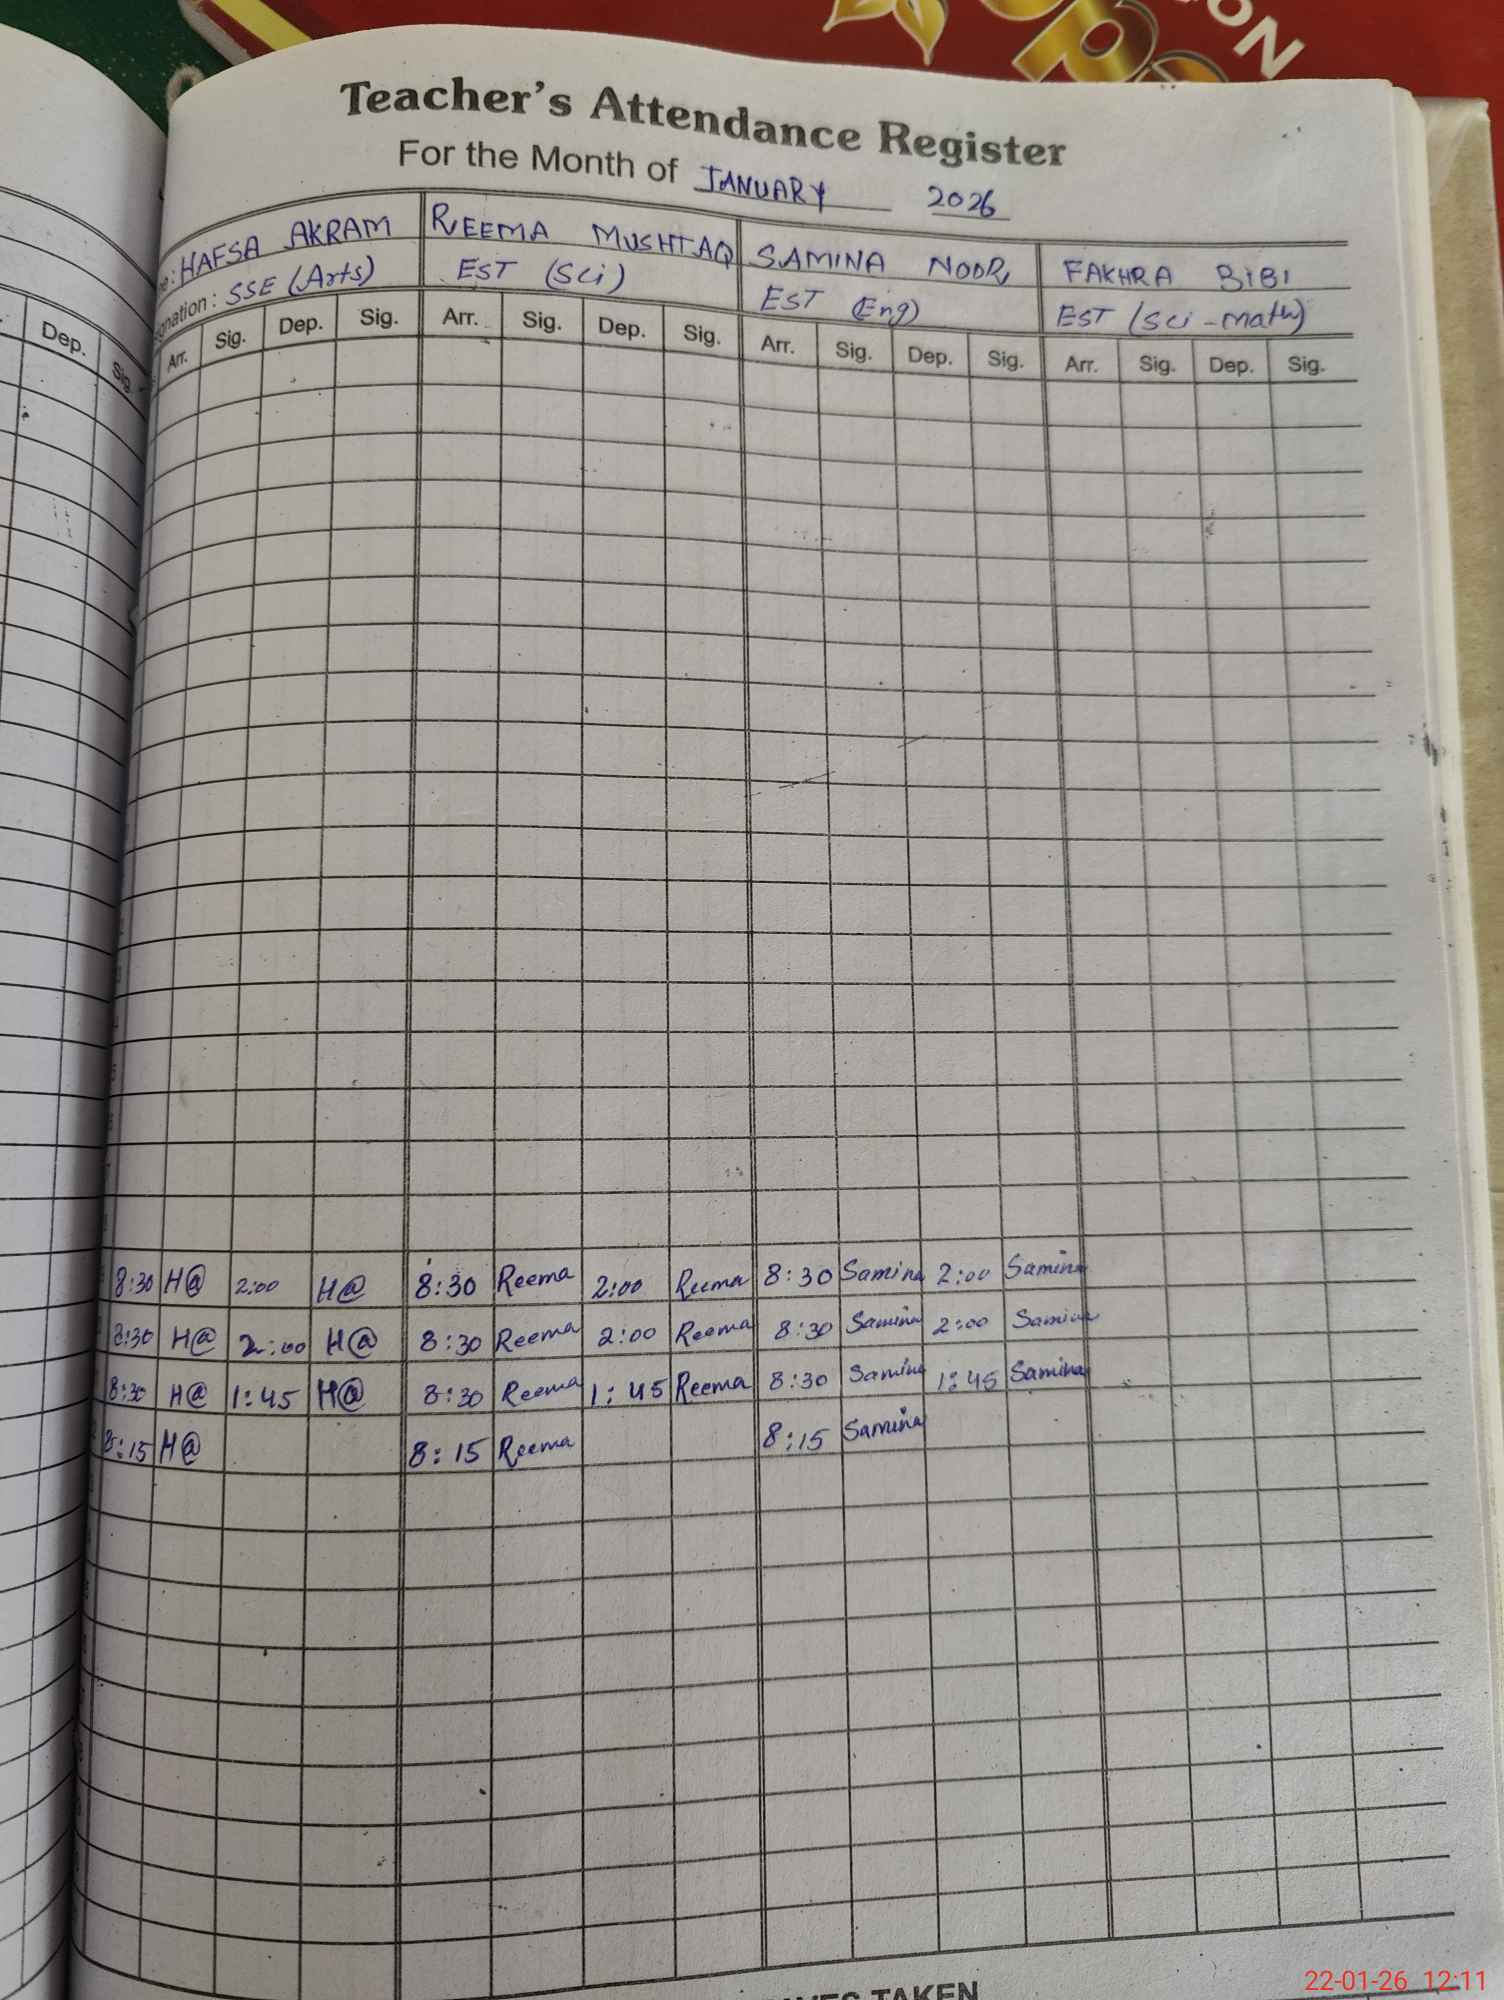 Teacher's Attendance Register
For the Month of JANUARY 2026
HAFSA AKRAM REEMA MUSHTAQ SAMINA NOOR FAKHRA BIBI
SSE (Arts) EST (Sci) EST (Eng) EST (Sci - Math)
Arr. Sig. Dep. Sig. Arr. Sig. Dep. Sig. Arr. Sig. Dep. Sig. Arr. Sig. Dep. Sig.
Dep. Sig.
8:30 H@ 2:00 H@ 8:30 Reema 2:00 Reema 8:30 Samina 2:00 Samina
8:30 H@ 2:00 H@ 8:30 Reema 2:00 Reema 8:30 Samina 2:00 Samina
8:30 H@ 1:45 H@ 8:30 Reema 1:45 Reema 8:30 Samina 1:45 Samina
8:15 H@ 8:15 Reema 8:15 Samina
TAKEN
22-01-26 12:11